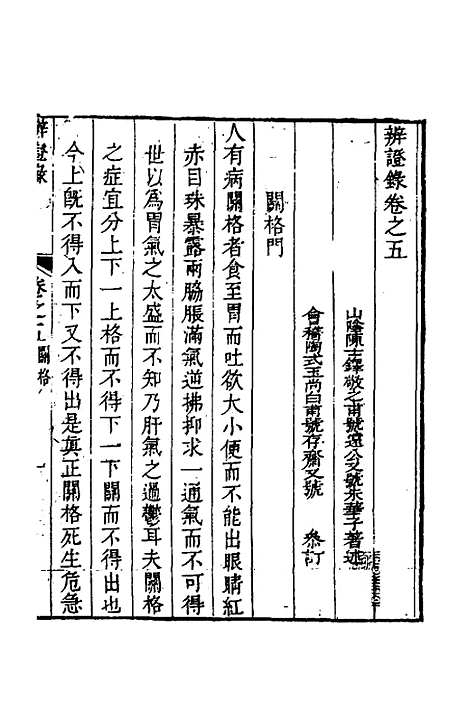 辨證錄卷之五
山陰陳士鐸敬之甫號遠公又號朱華子著述
會稽陶式玉尚白甫號存齋又號 參訂
關格門
人有病關格者食至胃而吐欲大小便而不能出眼睛紅
赤目珠暴露兩脇脹滿氣逆拂抑求一通氣而不可得
世以爲胃氣之太盛而不知乃肝氣之過鬱耳夫關格
之症宜分上下一上格而不得下一下關而不得出也
今上既不得入而下又不得出是眞正關格死生危急
辨證錄 卷之五關格 一